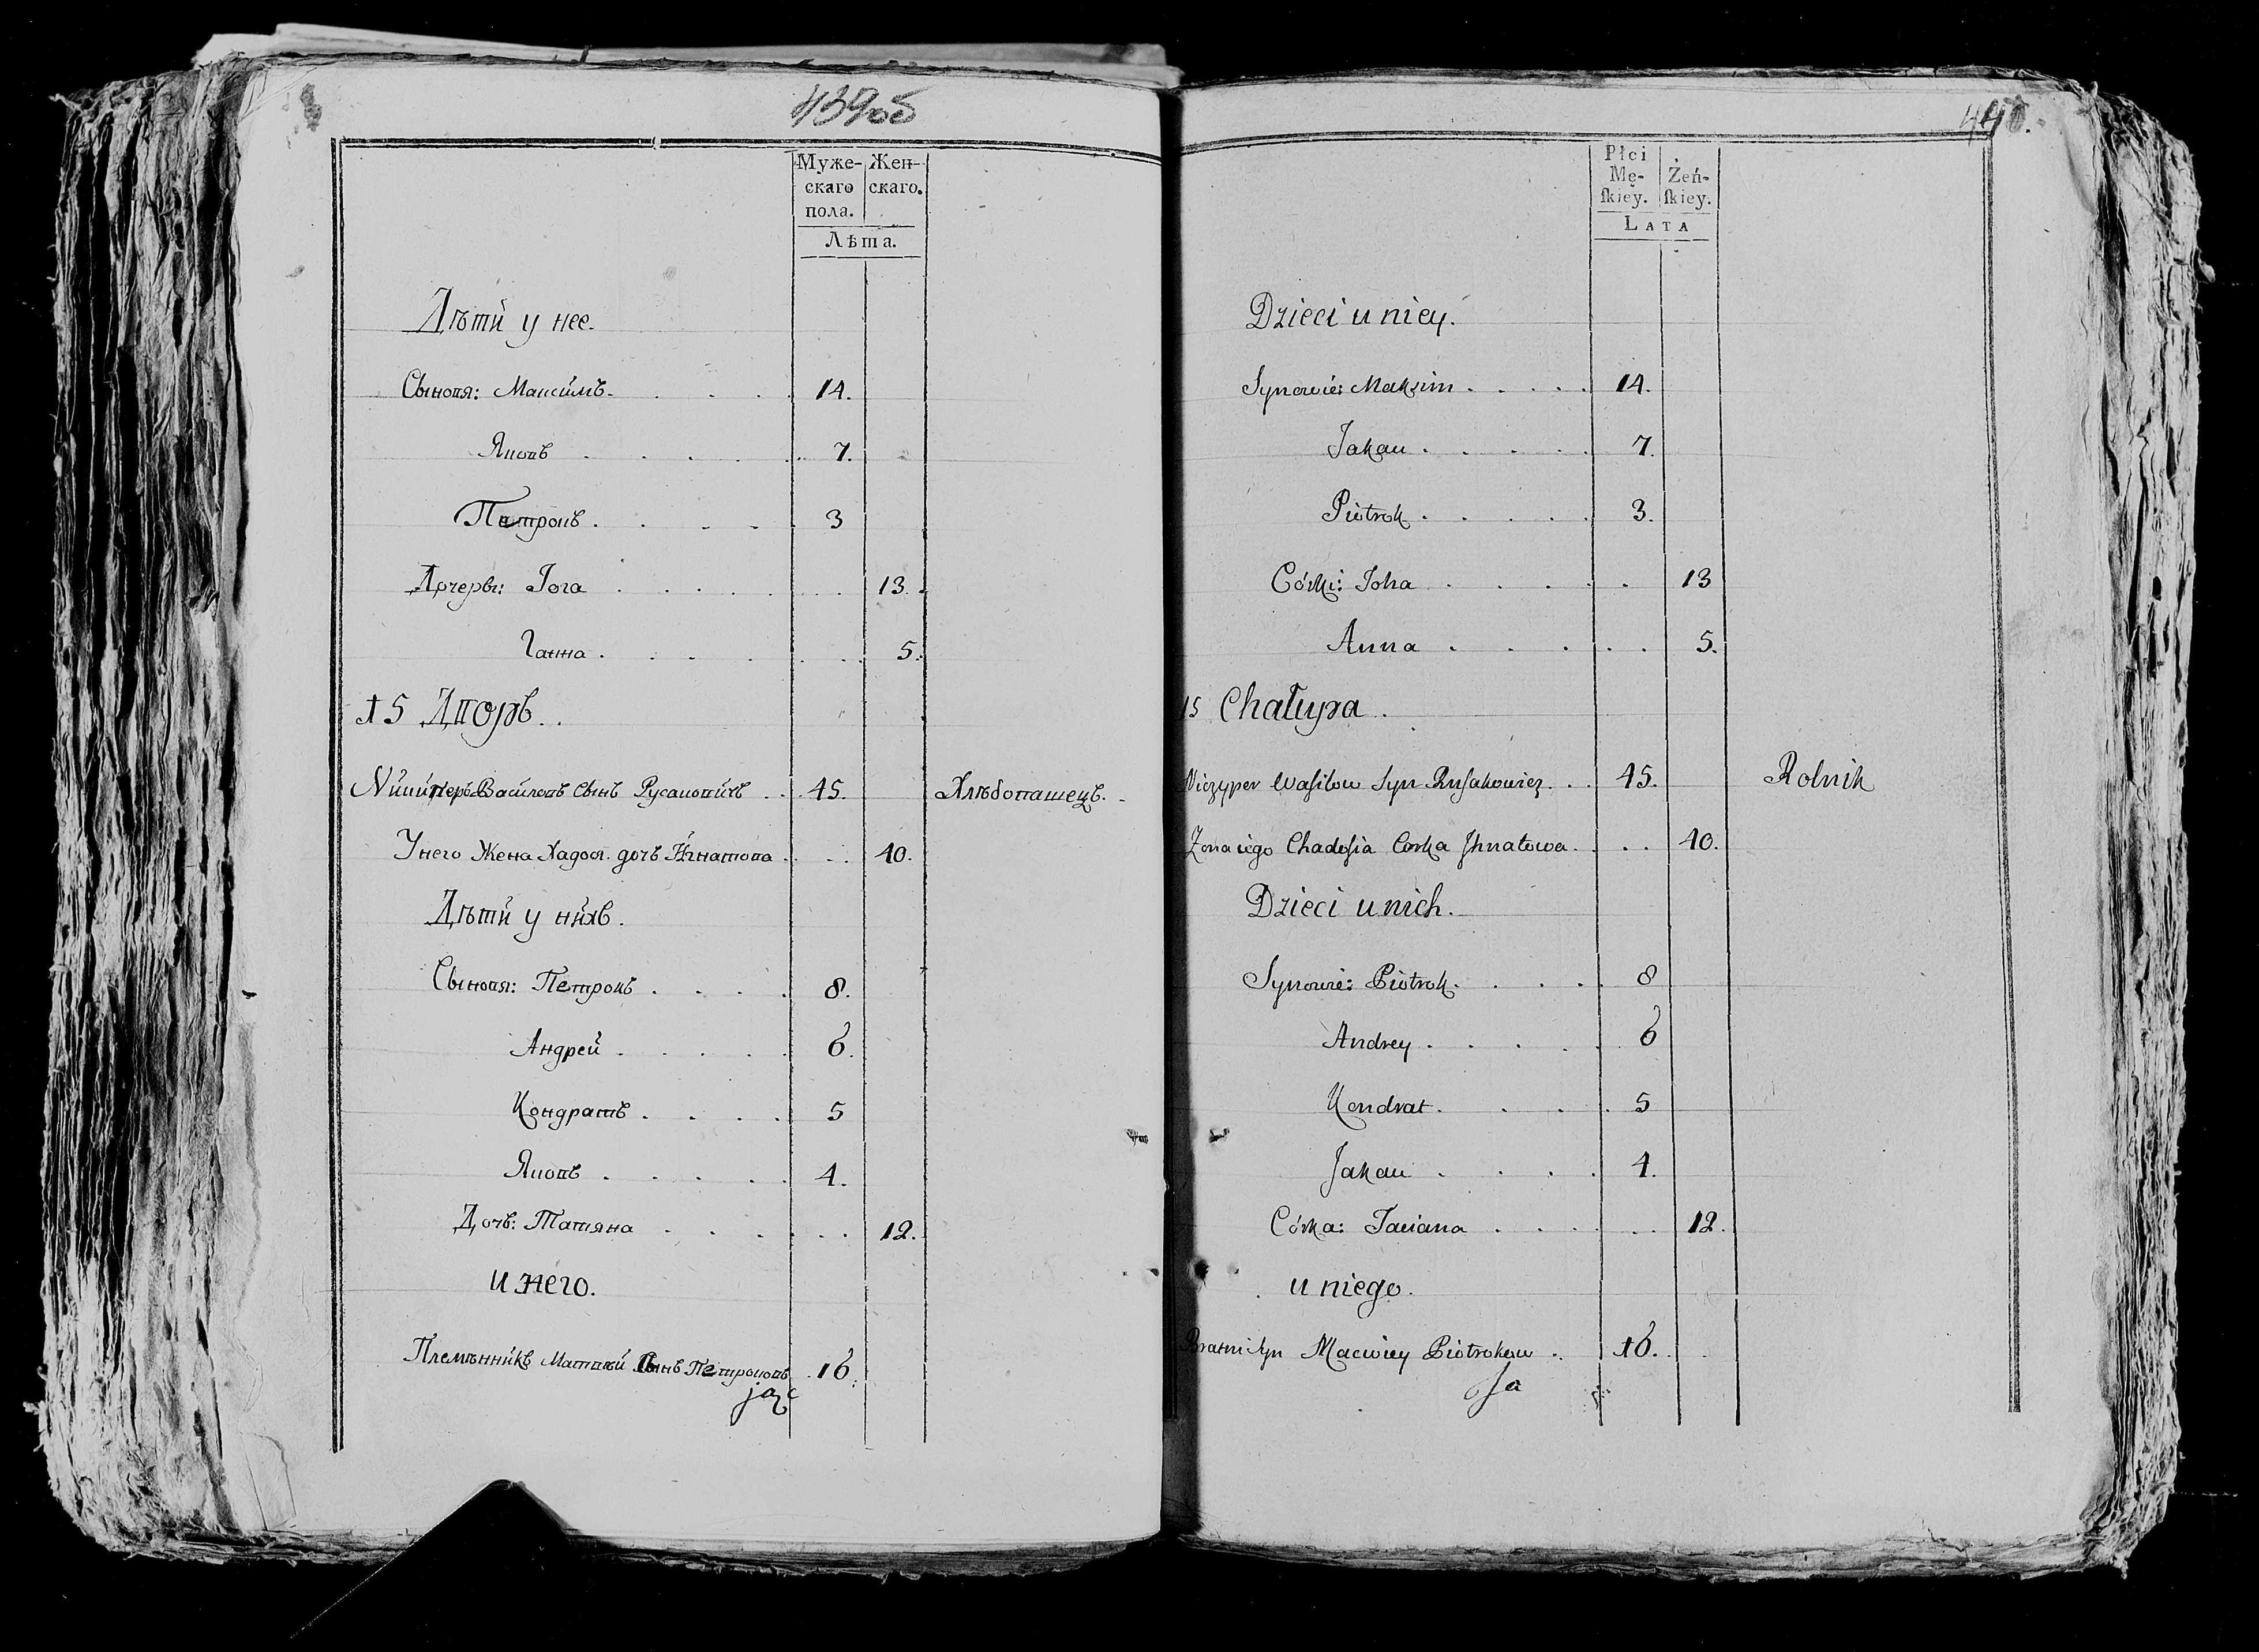 439об
Муже-
скаго
пола.
Жен-
скаго.
Лѣта.
Дѣти у нее.
Сыновя: Максимъ. 14.
Яковъ 7.
Петрокъ 3
Дочеры: Іога 13.
Ганна 5.
15 Дворъ.
Ничиперъ Василовъ Сынъ Русаковичъ 45. Хлѣбопашецъ.
У него Жена Хадося дочъ Игнатова 40.
Дѣти у нихъ.
Сыновя: Петрокъ 8.
Андрей 6.
Кондратъ 5
Яковъ 4.
Дочъ: Татяна 12.
и него.
Племѣнникъ Матвѣй Сынъ Петроковъ 16.
440.
Płci
Mę-
ſkiey.
Żeń-
ſkiey.
LATA
Dzieci u niey.
Synowie: Maksim 14.
Jakau 7.
Piotrok 3.
Córki: Joha 13
Anna 5.
15 Chałupa.
Niczyper Wasilow Syn Rusakowicz 45. Rolnik
Żona iego Chadosia Corka Jhnatowa 40.
Dzieci u nich.
Synowie: Piotrok 8
Andrey 6
Kondrat 5
Jakau 4.
Córka: Taciana 12.
u niego.
Bratni Syn Maciwiey Piotrokow 16.
Ja